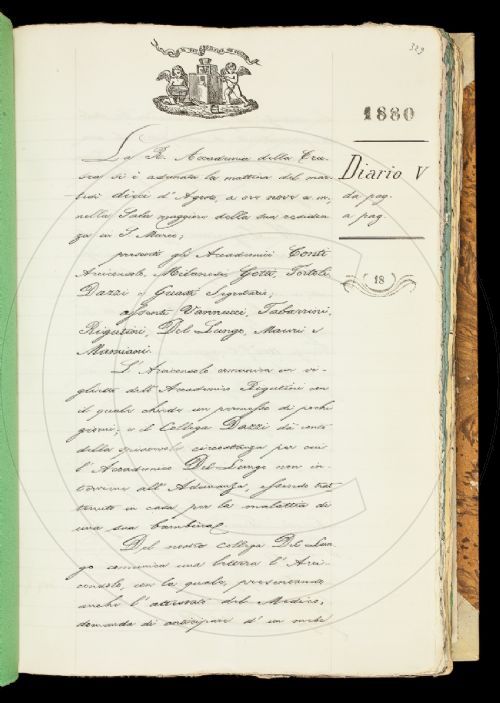 329
1880
Diario V
da pag.
a pag.
18
La R. Accademia della Cru-
sca si è adunata la mattina del mar-
tedì dieci d'Agosto, a ore nove a. m.,
nella Sala maggiore della sua residen-
za in S. Marco;
presenti gli Accademici Conti
Arciconsolo, Milanesi, Gotti, Tortoli,
Dazzi e Guasti Segretario;
assenti Vannucci, Tabarrini,
Rigutini, Del Lungo, Mauri e
Mamiani.
L'Arciconsolo comunica un vi-
glietto dell'Accademico Rigutini con
il quale chiede un permesso di pochi
giorni; e il Collega Dazzi dà conto
della spiacevole circostanza per cui
l'Accademico Del Lungo non in-
terviene all'Adunanza, essendo trat-
tenuto in casa per la malattia di
una sua bambina.
Del nostro collega Del Lun-
go comunica una lettera l'Arci-
consolo, con la quale, presentando
anche l'attestato del Medico,
domanda di anticipare d'un mese